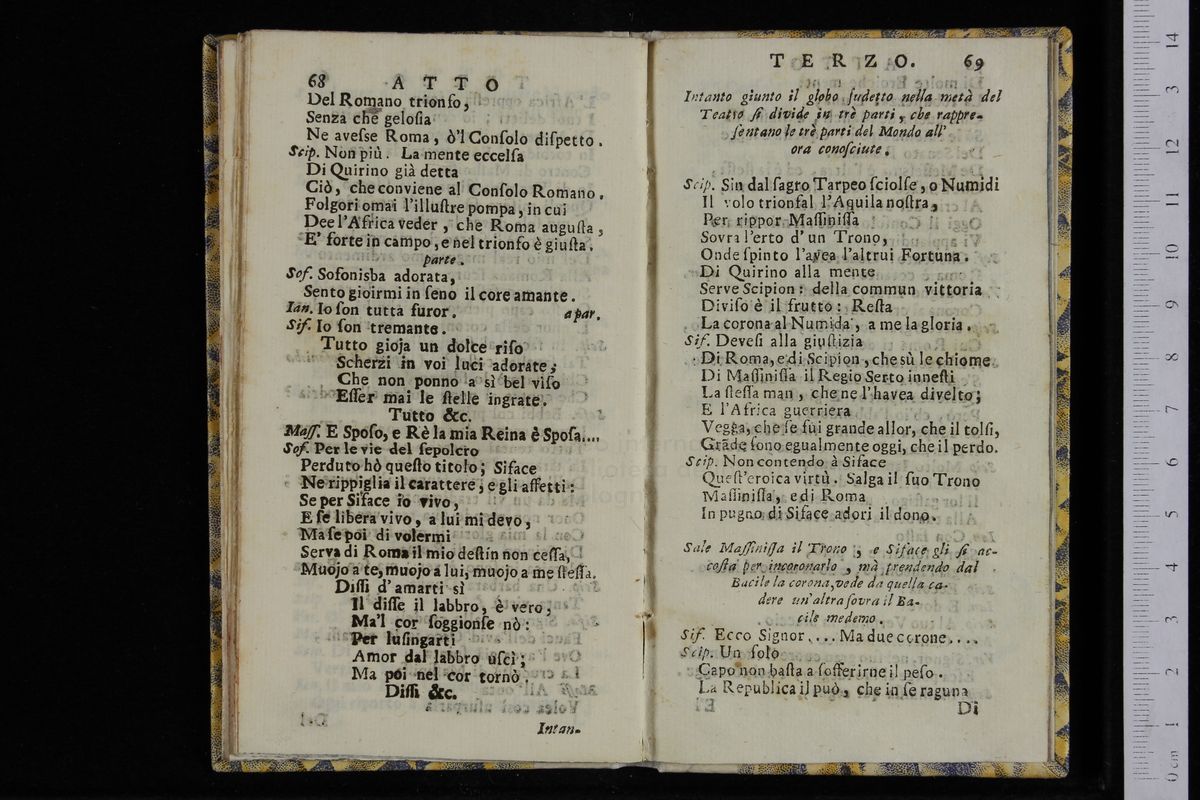 68 ATTO
Del Romano trionfo,
Senza che gelosia
Ne avesse Roma, ò'l Consolo dispetto.
Scip. Non più. La mente eccelsa
Di Quirino già detta
Ciò, che conviene al Consolo Romano.
Folgori omai l'illustre pompa, in cui
Dee l'Africa veder, che Roma augusta,
E' forte in campo, e nel trionfo è giusta.
parte.
Sof. Sofonisba adorata,
Sento gioirmi in seno il core amante.
Ian. Io son tutta furor. a par.
Sif. Io son tremante.
Tutto gioja un dolce riso
Scherzi in voi luci adorate;
Che non ponno a sì bel viso
Esser mai le stelle ingrate.
Tutto &c.
Mass. E Sposo, e Rè la mia Reina è Sposa....
Sof. Per le vie del sepolcro
Perduto hò questo titolo; Siface
Ne rippiglia il carattere, e gli affetti:
Se per Siface io vivo,
E se libera vivo, a lui mi devo,
Ma se poi di volermi
Serva di Roma il mio destin non cessa,
Muojo a te, muojo a lui, muojo a me stessa.
Dissi d'amarti sì
Il disse il labbro, è vero;
Ma'l cor soggionse nò:
Per lusingarti
Amor dal labbro uscì;
Ma poi nel cor tornò.
Dissi &c.
Intan-
TERZO. 69
Intanto giunto il globo sudetto nella metà del
Teatro si divide in trè parti, che rappre-
sentano le trè parti del Mondo all'
ora conosciute.
Scip. Sin dal sagro Tarpeo sciolse, o Numidi
Il volo trionfal l'Aquila nostra,
Per rippor Massinissa
Sovra l'erto d'un Trono,
Onde spinto l'avea l'altrui Fortuna.
Di Quirino alla mente
Serve Scipion: della commun vittoria
Diviso è il frutto: Resta
La corona al Numida, a me la gloria.
Sif. Devesi alla giustizia
Di Roma, e di Scipion, che sù le chiome
Di Massinissa il Regio Serto innesti
La stessa man, che ne l'havea divelto;
E l'Africa guerriera
Vegga, che se fui grande allor, che il tolsi,
Grāde sono egualmente oggi, che il perdo.
Scip. Non contendo à Siface
Quest'eroica virtù. Salga il suo Trono
Massinissa, e di Roma
In pugno di Siface adori il dono.
Sale Massinissa il Trono, e Siface gli si ac-
costa per incoronarlo, mà prendendo dal
Bacile la corona, vede da quella ca-
dere un'altra sovra il Ba-
cile medemo.
Sif. Ecco Signor.... Ma due corone....
Scip. Un solo
Capo non basta a sofferirne il peso.
La Republica il può, che in se raguna
Di